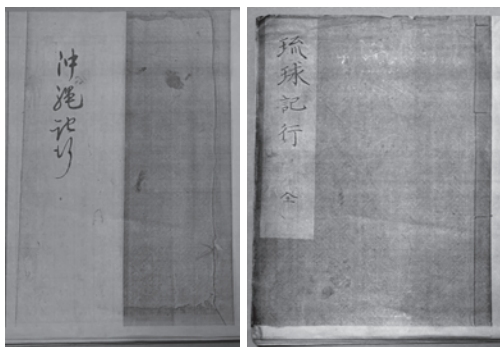 沖縄記行
琉球記行
全